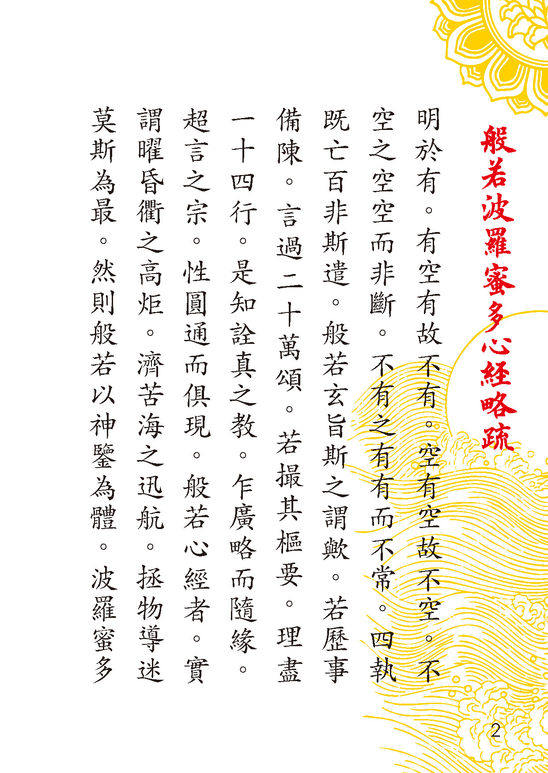 般若波羅蜜多心經略疏
明於有。有空有故不有。空有空故不空。不
空之空空而非斷。不有之有有而不常。四執
既亡百非斯遣。般若玄旨斯之謂歟。若歷事
備陳。言過二十萬頌。若撮其樞要。理盡
一十四行。是知詮真之教。乍廣略而隨緣。
超言之宗。性圓通而俱現。般若心經者。實
謂曜昏衢之高炬。濟苦海之迅航。拯物導迷
莫斯為最。然則般若以神鑒為體。波羅蜜多
2